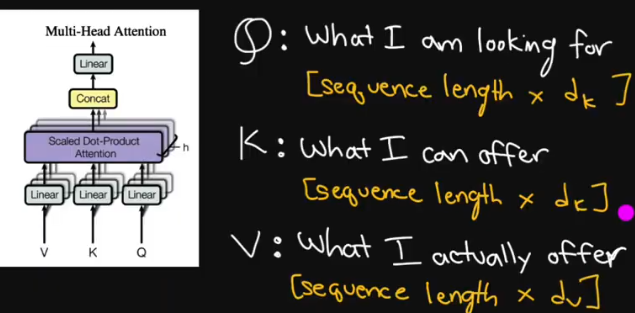 Multi-Head Attention
Linear
Concat
Scaled Dot-Product
Attention
h
Linear
Linear
Linear
V
K
Q
Q: What I am looking for
[sequence length x dk]
K: What I can offer
[sequence length x dk]
V: What I actually offer
[sequence length x dv]